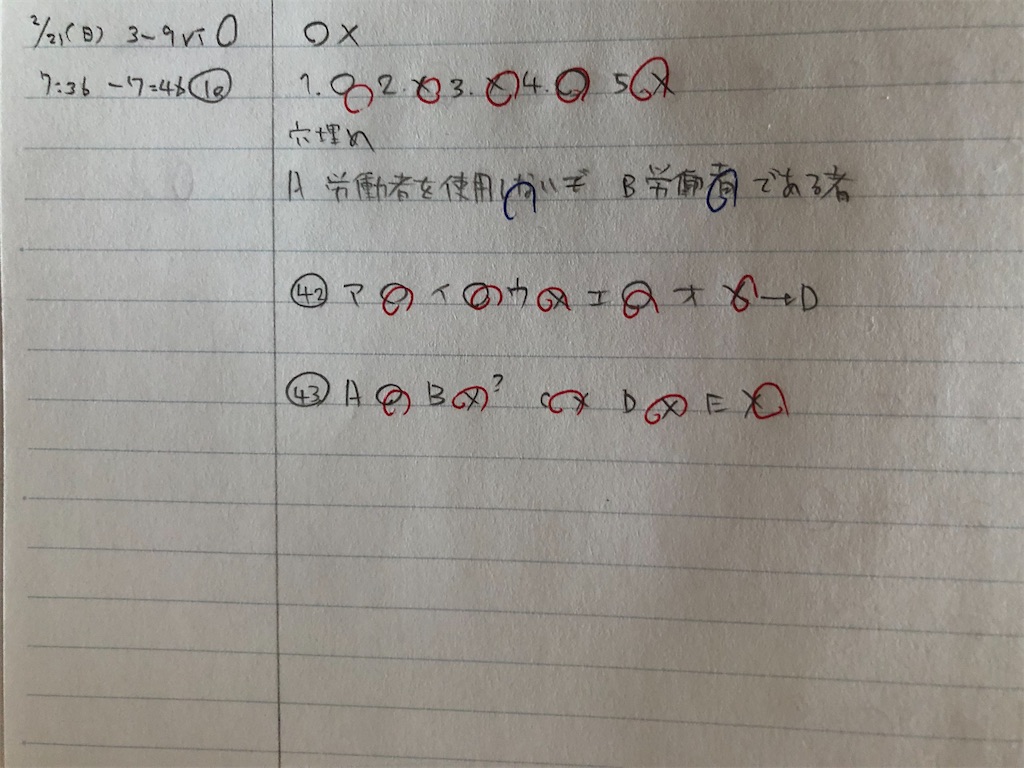 2/21(日) 3-9 VI 0
○×
7:36 -7:46 ⑩
1.○ 2.× 3.× 4.○ 5×
穴埋め
A 労働者を使用しないで B 労働者である者
㊷ ア○ イ○ ウ× エ○ オ×→D
㊸ A○ B×? C× D× E×